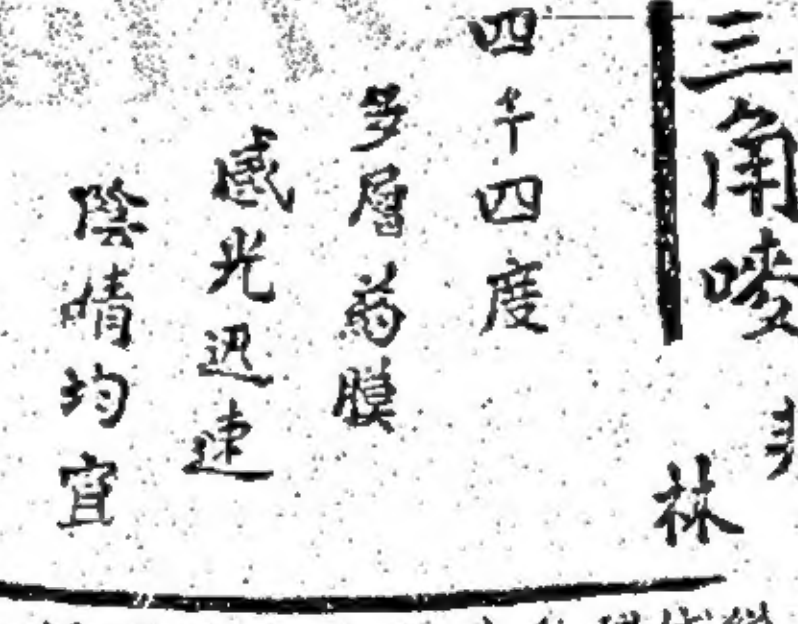 三角嘜
林
四千四度
多層药膜
感光迅速
陰晴均宜